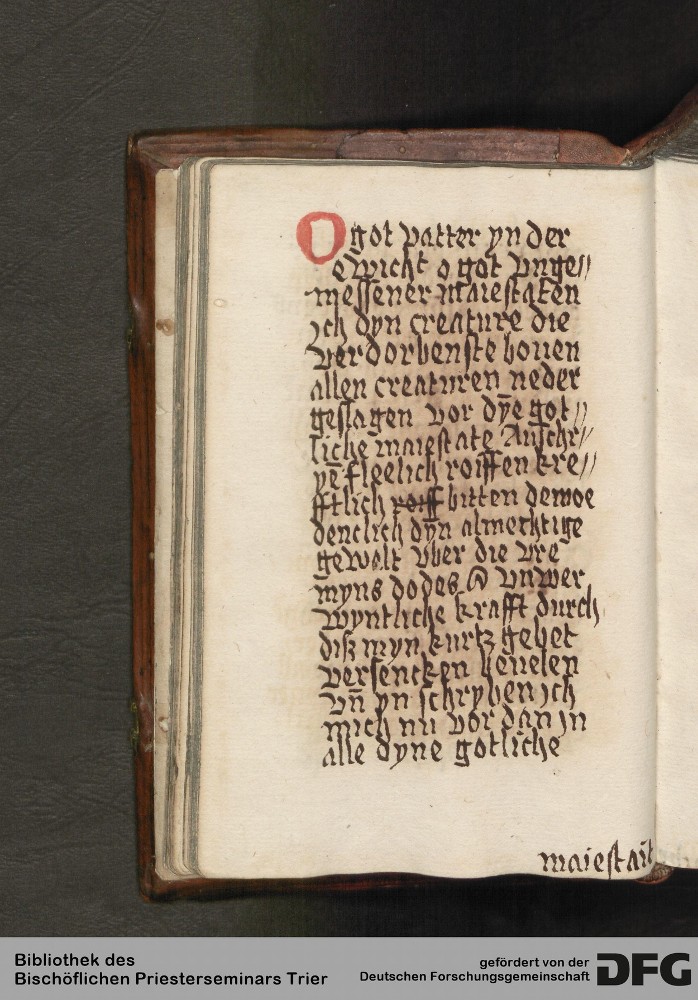 O got vatter yn der
ewicht o got vnge//
messener maiestaten
ich dyn creature die
verdorbenste bouen
allen creaturen neder
geslagen vor dȳe got//
liche maiestate Anschr//
yē fleelich roiffen kre//
fftlich roiff bitten demoe
denclich dȳn almechtige
gewalt vber die vre
myns dodes O vnwer
wyntliche krafft durch
diß myn kurtz gebet
versencken beuelen
vn̄ yn schryben ich
mich nu vor dan in
alle dyne gotliche
maiestait
Bibliothek des
Bischöflichen Priesterseminars Trier
gefördert von der
Deutschen Forschungsgemeinschaft
DFG